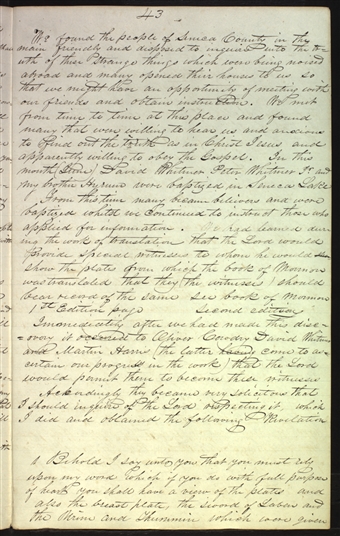 43
We found the people of Seneca County in the
main friendly and disposed to inquire into the tr-
uth of these strange things which were being noised
abroad and many opened their houses to us so
that we might have an opportunity of meeting with
our friends and obtain instruction. We met
from time to time at this place and found
many that were willing to hear us and anxious
to find out the truth as in Christ Jesus and
apparently willing to obey the Gospel. In this
month June David Whitmer Peter Whitmer Jr and
my brother Hyrum were baptized in Seneca Lake
From this time many became believers and were
baptized whilst we continued to instruct those who
applied for information. learned dur-
ing the work of translation that the Lord would
provide special witnesses to whom he would
show the plates from which the book of Mormon
was translated that they the witnesses should
bear record of the same see book of Mormon
1st Edition page Second edition
Immediately after we had made this disc-
overy it occurred to Oliver Cowdry David Whitmer
and Martin Harris the latter come to as-
certain our progress in the work that the Lord
would permit them to become these witnesses
Accordingly they became very solicitous that
I should inquire of the Lord respecting it which
I did and obtained the following Revelation
1 Behold I say unto you that you must rely
upon my word which if you do with full purpose
of heart you shall have a view of the plates and
also the breast plate, the sword of Laban and
the Urim and Thummim which were given